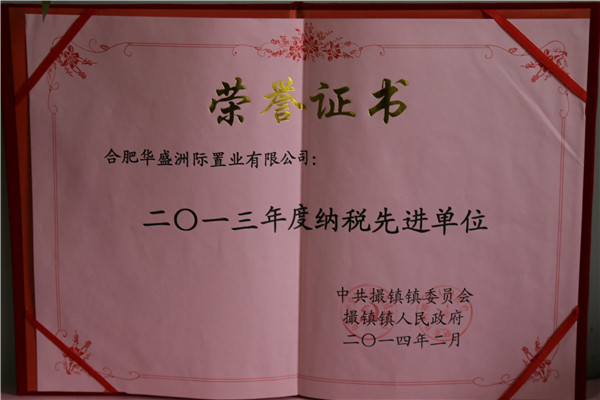 荣誉证书
合肥华盛洲际置业有限公司：
二〇一三年度纳税先进单位
中共撮镇镇委员会
撮镇镇人民政府
二〇一四年二月